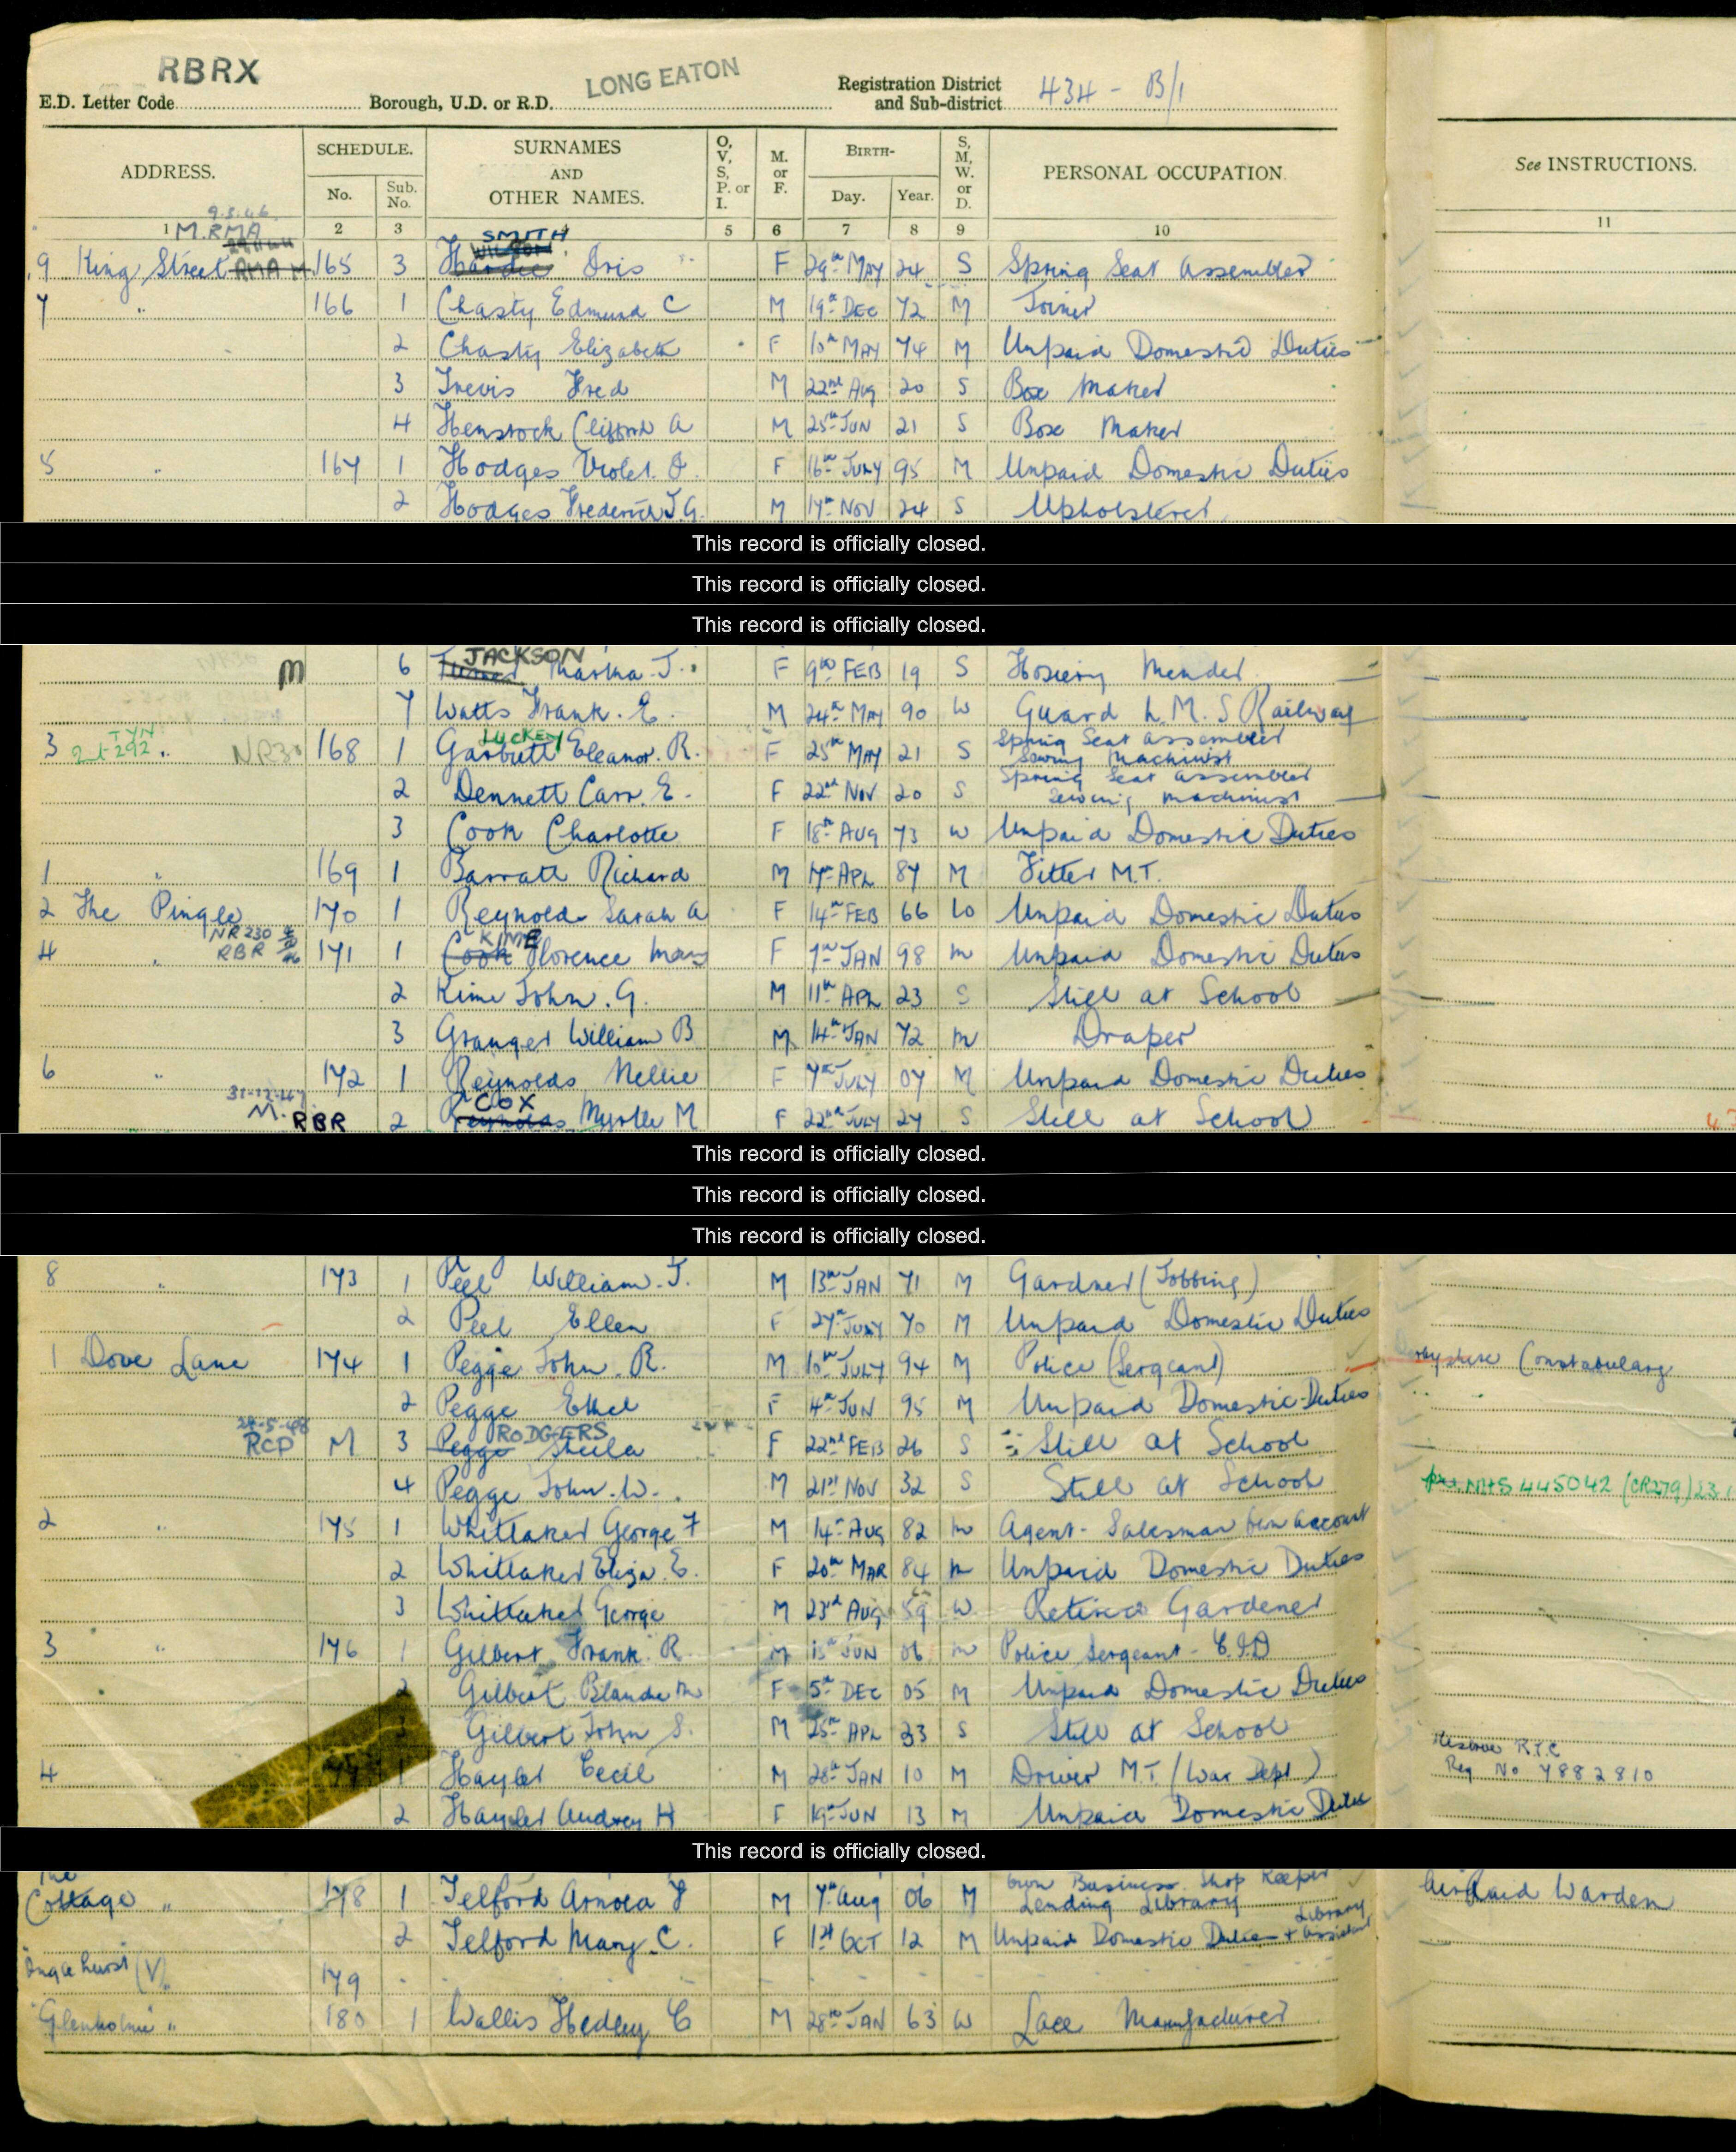 RBRX
LONG EATON
E.D. Letter Code Borough, U.D. or R.D. Registration District and Sub-district 434 - B/1
ADDRESS. SCHEDULE. No. Sub. No. SURNAMES AND OTHER NAMES. O, V, S, P. or I. M. or F. BIRTH- Day. Year. S, M, W. or D. PERSONAL OCCUPATION. See INSTRUCTIONS.
9.5.46
1 M.RMA 2 3 5 6 7 8 9 10 11
SMITH
9 King Street 165 3 Dris F 29th MAY 24 S Spring Seat Assembler
7 " 166 1 Chasty Edmund C M 19th DEC 72 M Joiner
2 Chasty Elizabeth F 10th MAY 74 M Unpaid Domestic Duties
3 Trevis Fred M 22nd Aug 20 S Box Maker
4 Henstock Clifford A M 25th JUN 21 S Box Maker
5 " 167 1 Hodges Violet. O. F 16th JULY 95 M Unpaid Domestic Duties
2 Hodges Frederick J.G. M 17th NOV 24 S Upholsterer
This record is officially closed.
This record is officially closed.
This record is officially closed.
JACKSON
M 6 Turner Martha J. F 9th FEB 19 S Hosiery Mender
7 Watts Frank. E. M 24th MAY 90 W Guard L.M.S Railway
TYN LUCKEY
3 " 168 1 Garbutt Eleanor. R. F 25th MAY 21 S Spring Seat Assembler Sewing Machinist
2 Dennett Carr. E. F 22nd Nov 20 S Spring Seat Assembler Sewing Machinist
3 Cook Charlotte F 18th AUG 73 W Unpaid Domestic Duties
1 " 169 1 Barratt Richard M 17th APL 87 M Fitter M.T.
2 The Pingle 170 1 Reynolds Sarah A F 14th FEB 66 W Unpaid Domestic Duties
NR 230 KIME
4 " RBR 171 1 Cook Florence Mary F 7th JAN 98 M Unpaid Domestic Duties
2 Kime John. G. M 11th APL 23 S Still at School
3 Granger William B M 14th JAN 72 M Draper
6 " 172 1 Reynolds Nellie F 7th JULY 07 M Unpaid Domestic Duties
31-12-47 COX
M. RBR 2 Reynolds Myrtle M F 22nd JULY 27 S Still at School
This record is officially closed.
This record is officially closed.
This record is officially closed.
8 " 173 1 Peel William. J. M 13th JAN 71 M Gardner (Jobbing)
2 Peel Ellen F 27th JULY 70 M Unpaid Domestic Duties
1 Dove Lane 174 1 Pegge John. R. M 10th JULY 94 M Police (Sergeant) Constabulary
2 Pegge Ethel F 4th JUN 95 M Unpaid Domestic Duties
28-5-48 RODGERS
RCP M 3 Pegge Sheila F 22nd FEB 26 S Still at School
4 Pegge John. W. M 21st NOV 32 S Still at School NHS 445042 (CR279)
2 " 175 1 Whittaker George F M 14th AUG 82 M Agent - Salesman Own account
2 Whittaker Eliza. E. F 20th MAR 84 M Unpaid Domestic Duties
3 Whittaker George M 23rd Aug 59 W Retired Gardener
3 " 176 1 Gilbert Frank. R. M JUN 06 M Police Sergeant - C.I.D
2 Gilbert Blanche M F 5th DEC 05 M Unpaid Domestic Duties
3 Gilbert John S. M 25th APL 33 S Still at School
4 1 Hayler Cecil M 28th JAN 10 M Driver M.T (War Dept) Reserve R.T.C Reg No 7882810
2 Hayler Audrey H F 19th JUN 13 M Unpaid Domestic Duties
This record is officially closed.
The Cottage " 178 1 Telford Arnold F M 7th Aug 06 M Own Business. Shop Keeper Lending Library Air Raid Warden
2 Telford Mary. C. F 1st OCT 12 M Unpaid Domestic Duties + Library Assistant
(V) 179
"Glenholme" " 180 1 Wallis Hedley C M 28th JAN 63 W Lace Manufacturer